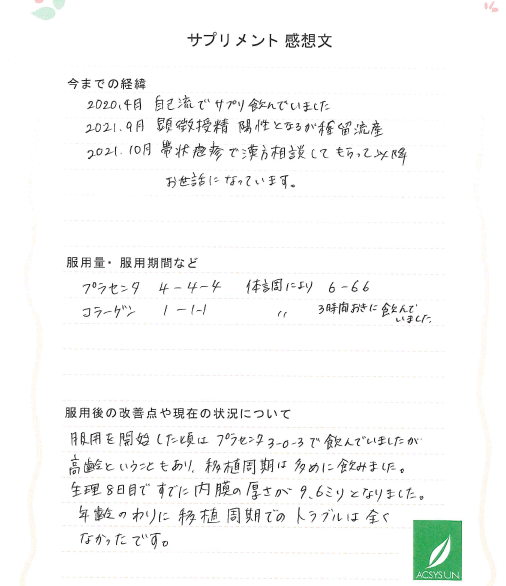 サプリメント 感想文
今までの経緯
2020.4月 自己流でサプリ飲んでいました
2021.9月 顕微授精 陽性となるが稽留流産
2021.10月 帯状疱疹で漢方相談してもらって以降
お世話になっています。
服用量・服用期間など
プラセンタ 4-4-4 体調により 6-6-6
コラーゲン 1-1-1 〃 3時間おきに飲んで
いました。
服用後の改善点や現在の状況について
服用を開始した頃は プラセンタ3-0-3で飲んでいましたが
高齢ということもあり、移植周期は多めに飲みました。
生理8日目ですでに内膜の厚さが 9.6ミリとなりました。
年齢のわりに移植周期でのトラブルは全く
なかったです。
ACSYSUN